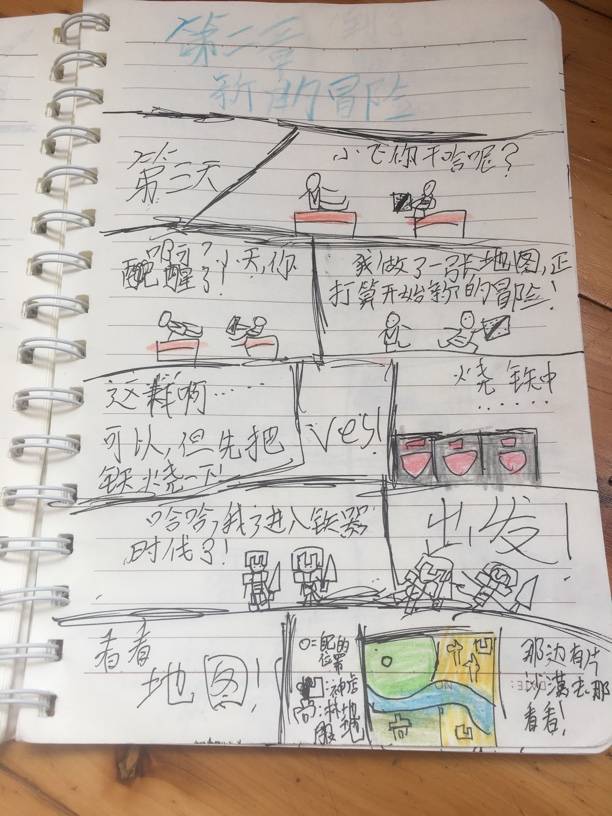 第二章
新的冒险
第二天
小飞你干啥呢?
啊?小天,你
醒了!
我做了一张地图,正
打算开始新的冒险!
这样啊……
可以,但先把
铁烧一下!
Yes!
烧铁中
……
哈哈,我们进入铁器
时代了!
出发!
看看
地图!
O=我的
位置
:神庙
:林地
那边有片
沙漠去那
看看!